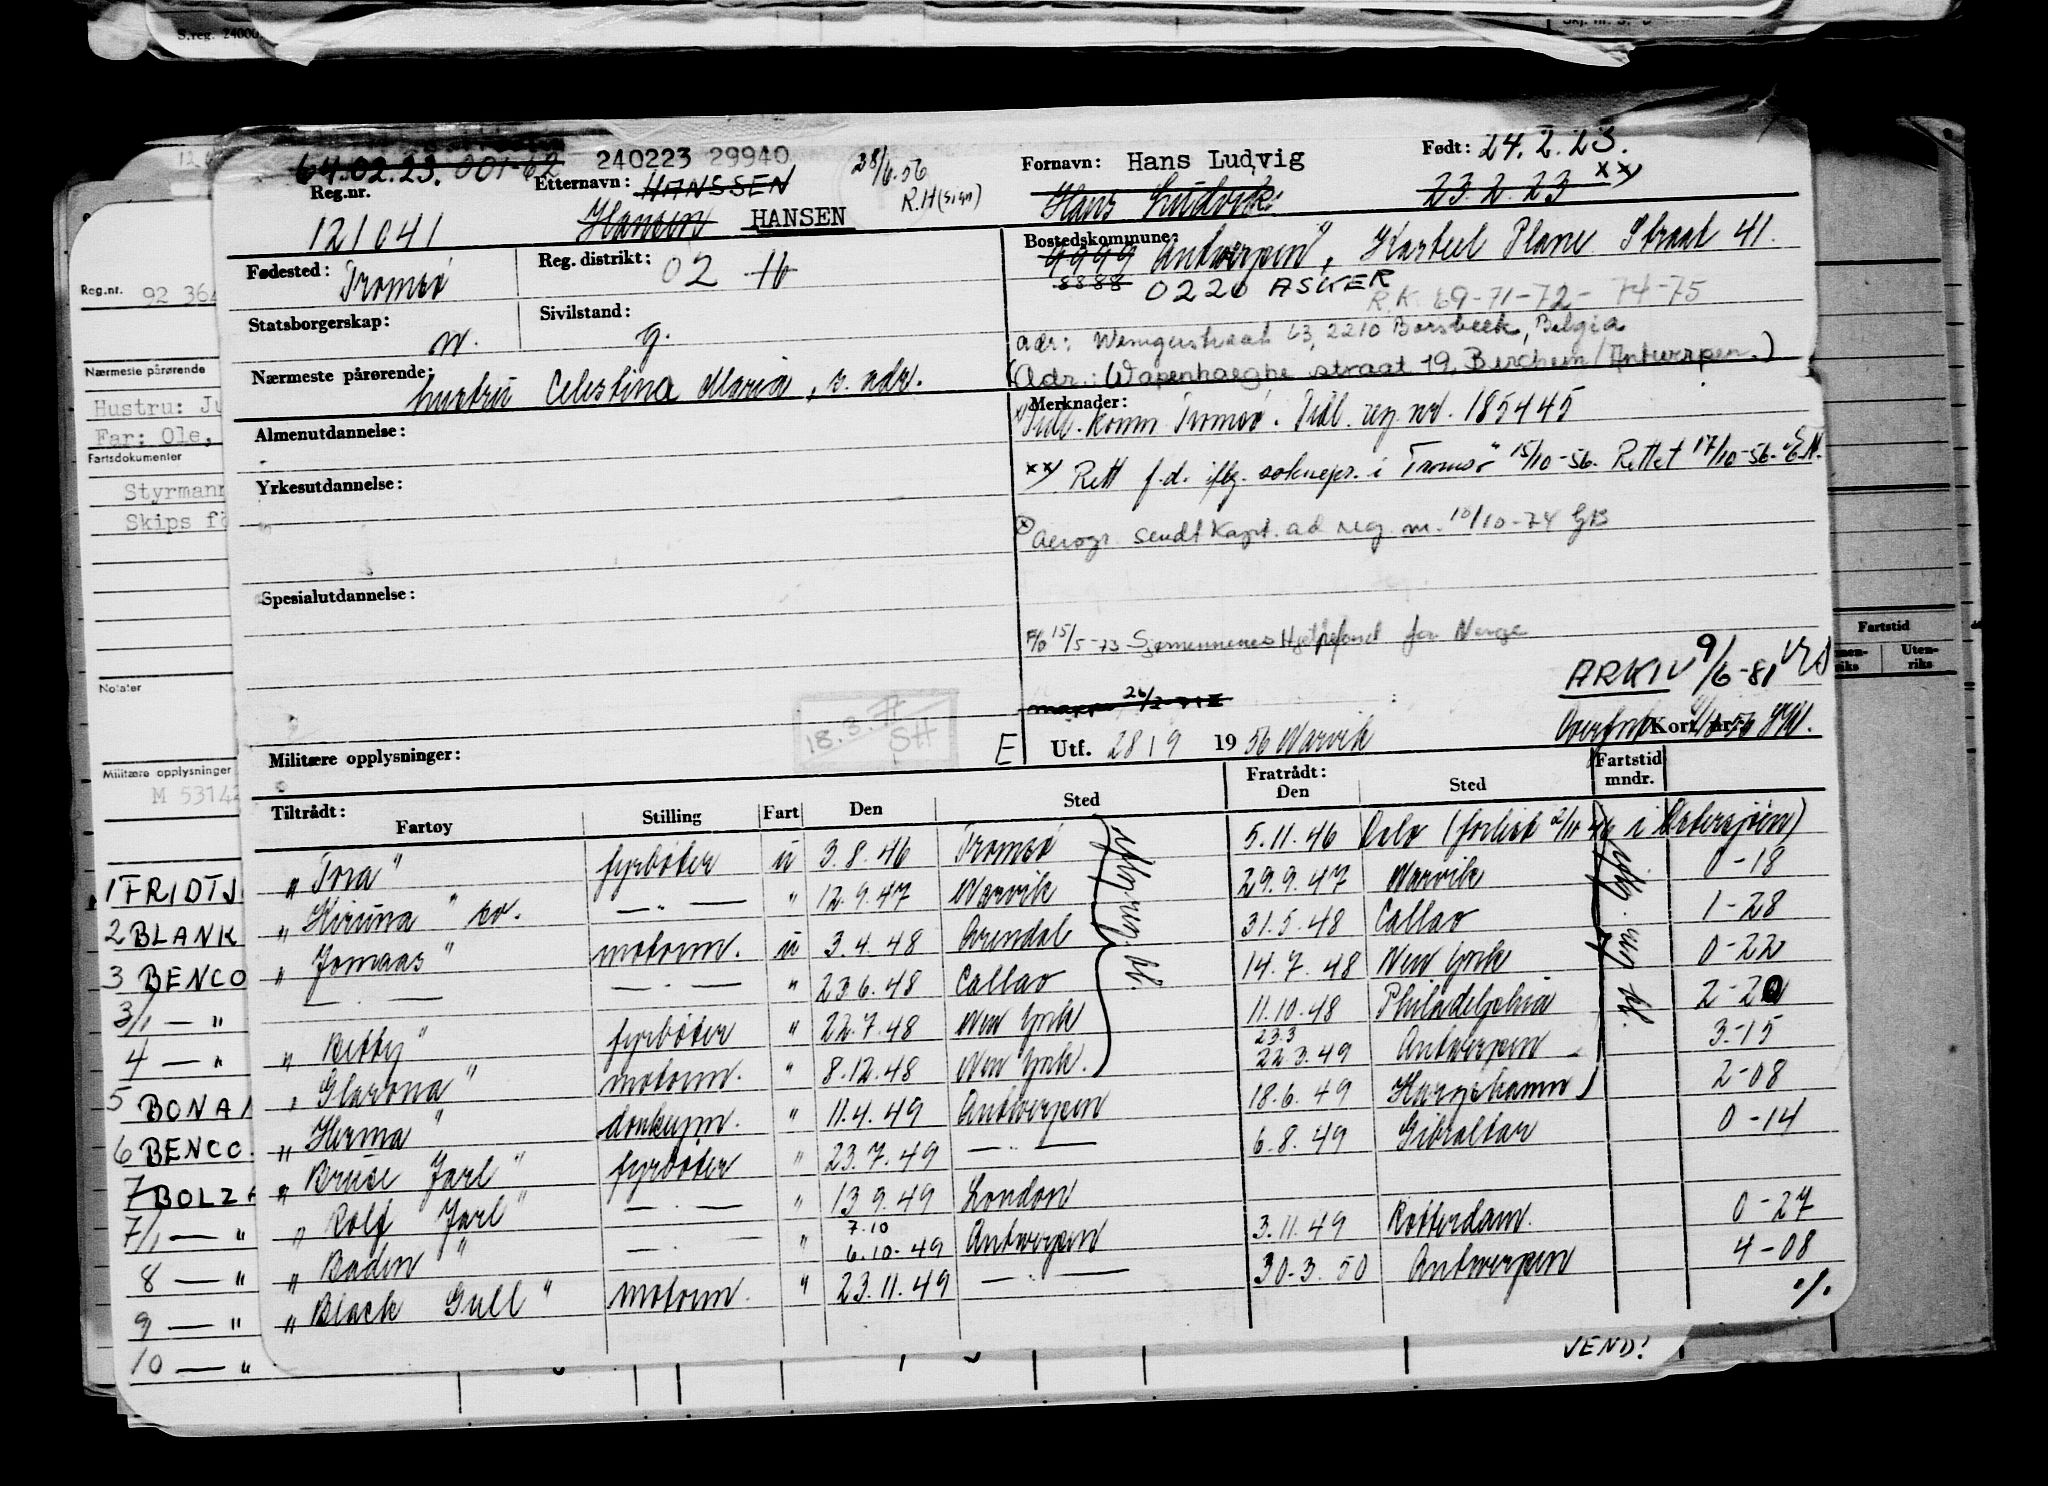 S.reg. 24000
64.02.23. 001-62 240223 29940 28/6.56 Fornavn: Hans Ludvig Født: 24.2.23.
Reg.nr. Etternavn: HANSSEN R.H(sign) Hans Ludvik 23.2.23 xx)
121041 Hansen HANSEN
Fødested: Tromsø Reg. distrikt: 02 16
Bostedskommune: 9999 Antwerpen, Karteel Plane Straat 41.
8888 0220 ASKER
R.K. 69-71-72-74-75
Statsborgerskap: n. Sivilstand: g.
adr: 63, 2210 Borsbeek, Belgia
(Adr.: Wapenhaeghe straat 19, Berchem/Antwerpen.)
Nærmeste pårørende: hustru Celestina Maria, s. adr.
Merknader:
x) Tidl. komm Tromsø. Tidl. reg nr. 185445
Almenutdannelse:
xx) Rett f.d. iflg. soknepr. i Tromsø 15/10-56. Rettet 17/10-56.
Yrkesutdannelse:
(x) Aerogr. sendt Kapt. ad reg. m. 10/10-74 GB
Spesialutdannelse:
F/o 15/5-73 Sjømennenes Hjelpefond for Norge
ARKIV 9/6-81
18.3.77 SH
Militære opplysninger:
E Utf. 28/9 1956 Narvik Kort nr.
Tiltrådt: Fartøy Stilling Fart Den Sted Fratrådt: Den Sted Fartstid mndr.
"Tora" fyrbøter u 3.8.46 Tromsø 5.11.46 Oslo (forlist 2/11 46 i Østersjøen)
"Kiruna" sv. — " — " 12.9.47 Narvik 29.9.47 Narvik 0-18
"Jomaas" motorm. u 3.4.48 Arendal 31.5.48 Callao 1-28
— . — — . — " 23.6.48 Callao 14.7.48 New York 0-22
"Betty" fyrbøter " 22.7.48 New York 11.10.48 Philadelphia 2-20
"Glarona" motorm. " 8.12.48 New York. 23.3 22.3.49 Antwerpen 3-15
"Herma" donkeym. " 11.4.49 Antwerpen 18.6.49 Hargshamn 2-08
"Bruse Jarl" fyrbøter " 23.7.49 — . — 6.8.49 Gibraltar 0-14
"Rolf Jarl" — . — " 13.9.49 London
"Baden" — . — " 7.10 6.10.49 Antwerpen 3.11.49 Rotterdam. 0-27
"Black Gull" motorm. " 23.11.49 — . — 30.3.50 Antwerpen 4-08
%.
VEND!
Reg.nr. 92 364
Nærmeste pårørende
Hustru: Ju
Far: Ole,
Fartsdokumenter
Styrmann
Skips fø
Notater
Militære opplysninger
M 53142
1 FRIDTJ
2 BLANK
3 BENCO
3/1 — "
4 — "
5 BONA
6 BENCO
7 BOLZA
7/1 — "
8 — "
9 — "
10 — "
Fartstid
Uten-
riks